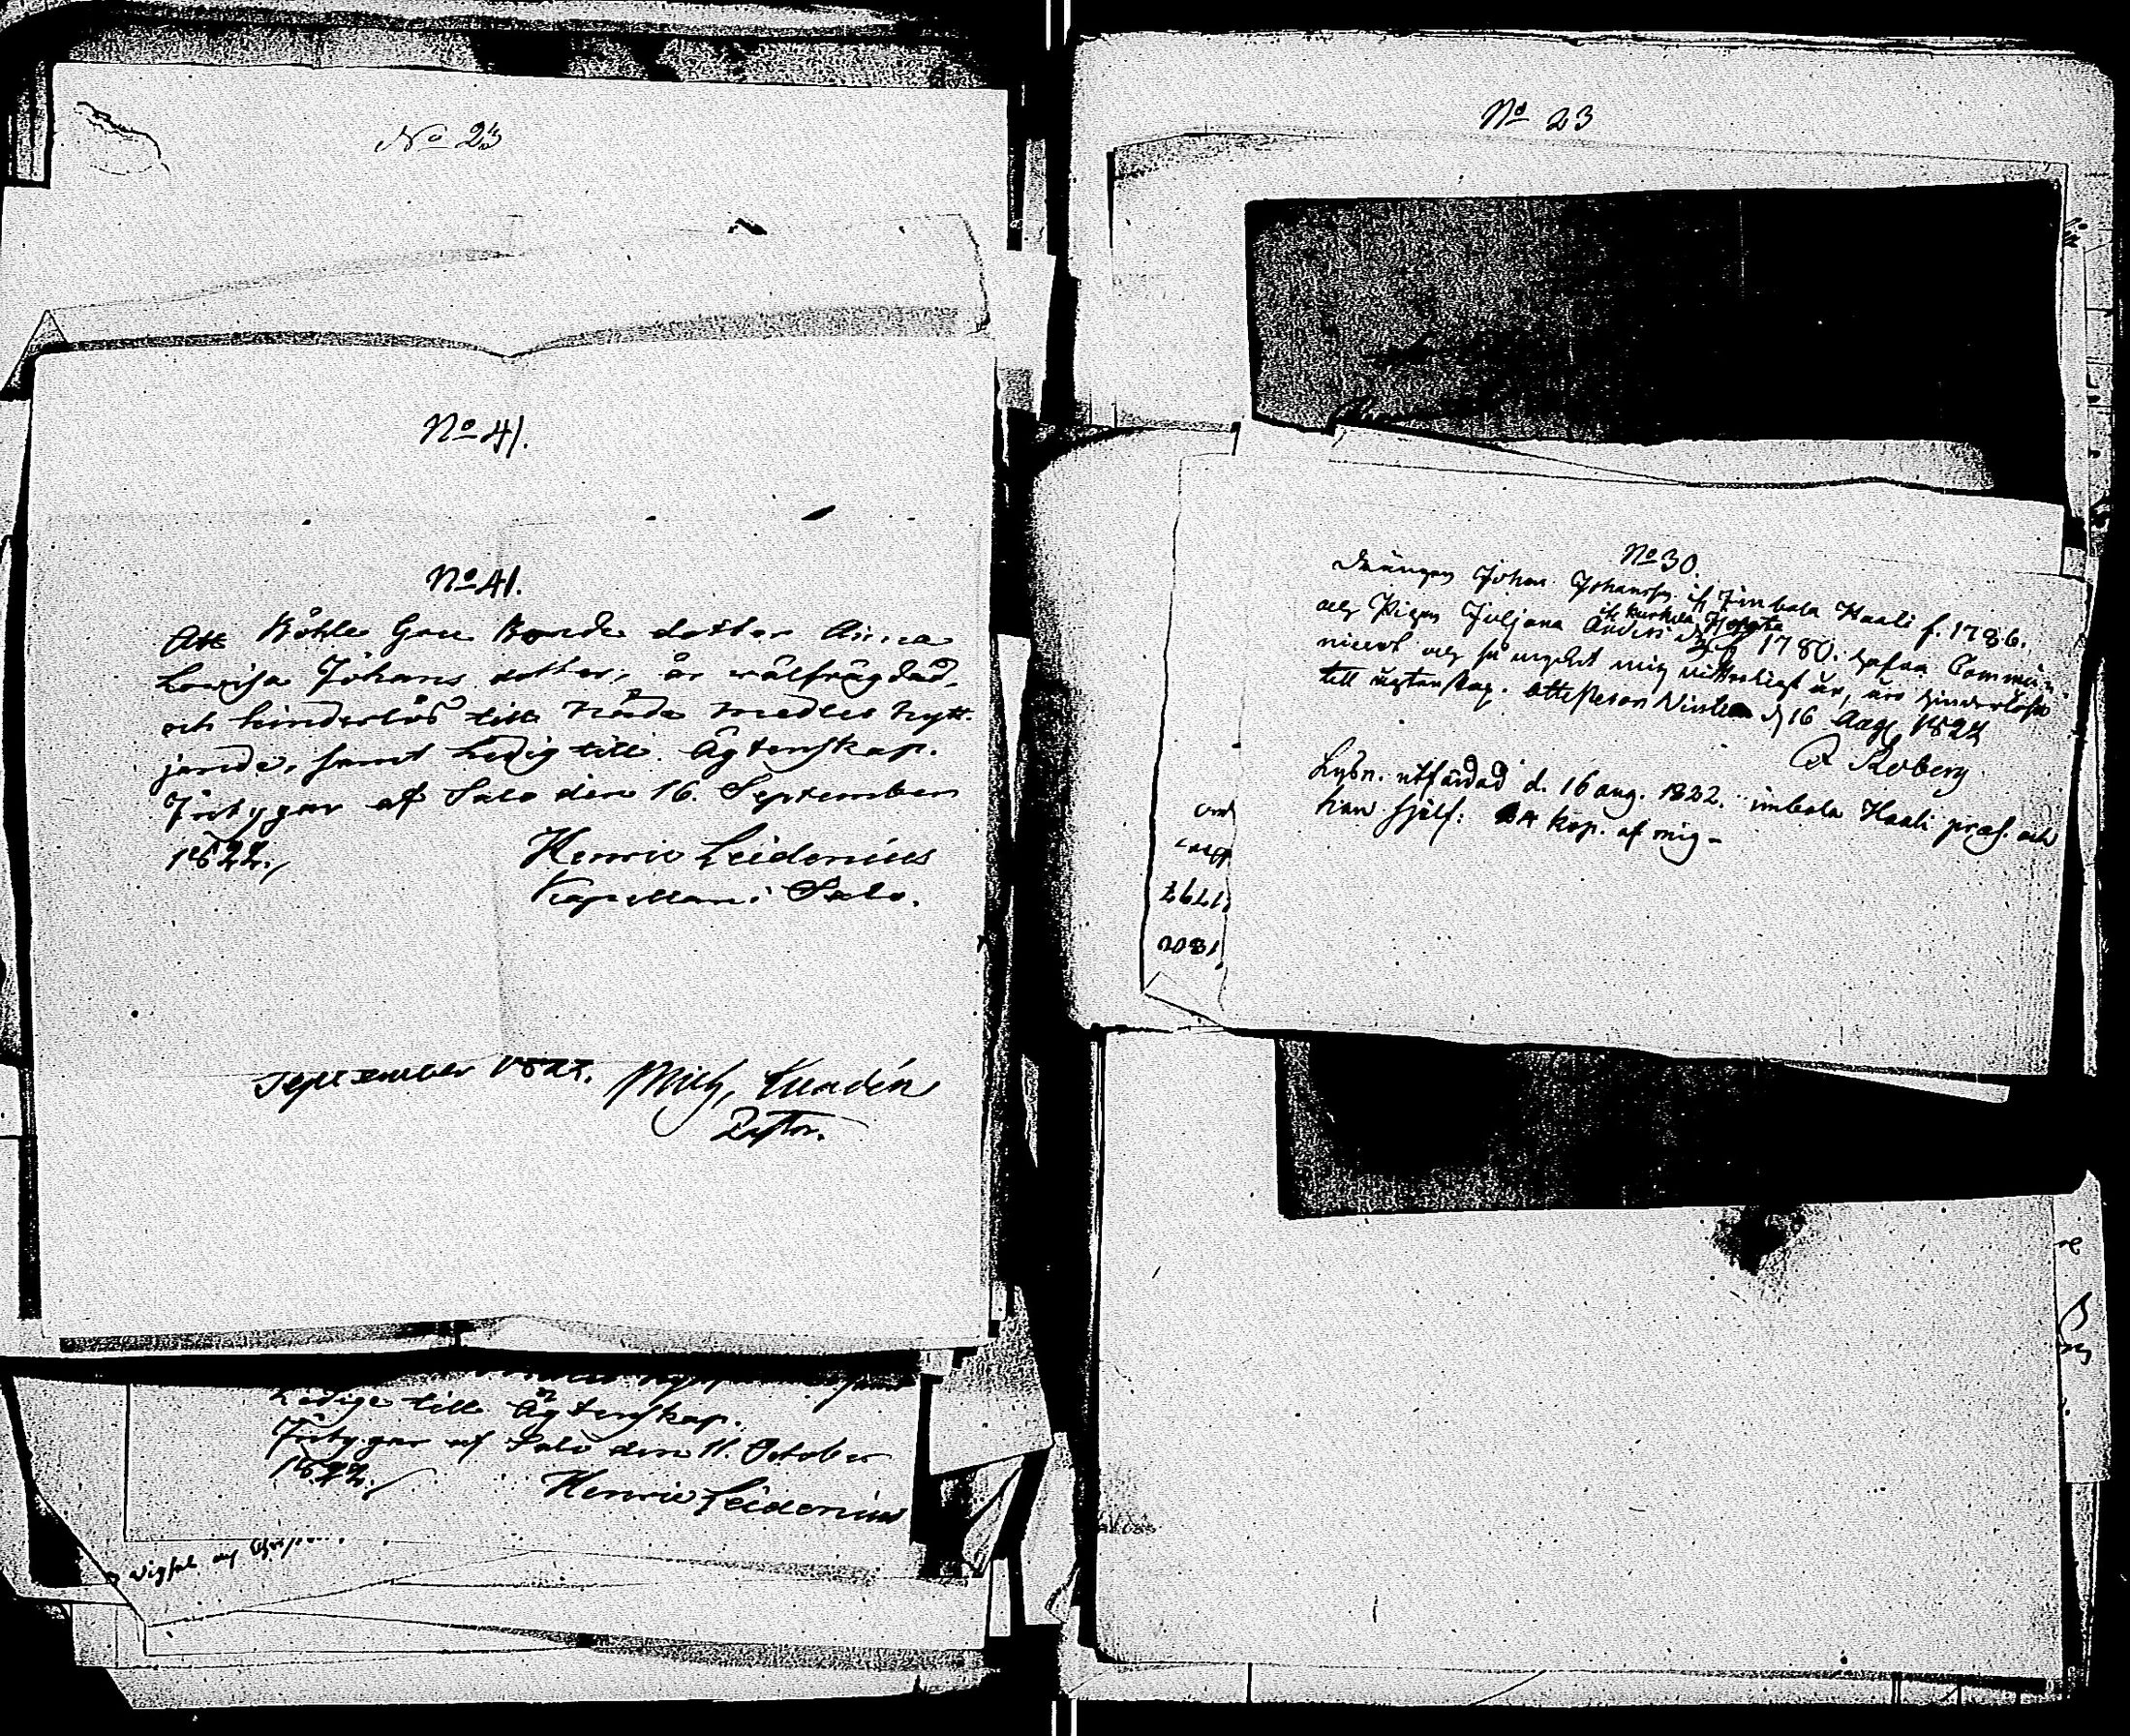 No 23
No 41.
No 41.
Att Böhle Gru Bonde dotter Anna
Lovisa Johans dotter, är välfrägdad,
och hinderlös till Nåde medlens nytt-
jande, samt Ledig till Ägtenskap.
Intygar af Salo den 16. September
1822.
Henric Leidenius
Kapellan i Salo.
September 1822. Mich,
Pastor.
Ledige till Ägtenskap.
Intygar af Salo den 11. October
1822.
Henric Leidenius
No 23
No 30.
Drängen Johan Johansson if. Imbala Haali f. 1786.
och Pigan Juljana Anders dr f 1780. hafva Commu-
ifr. Kurkela
nicerat och så mycket mig vitterligt är, äro hinderlöse
till ägtenskap. Attesteras d 16 Aug. 1822
Roberg.
Lysn. utfärdad d. 16 aug. 1822. imbala Haali præs. och
han sjelf: kop. af mig -
1797
1802